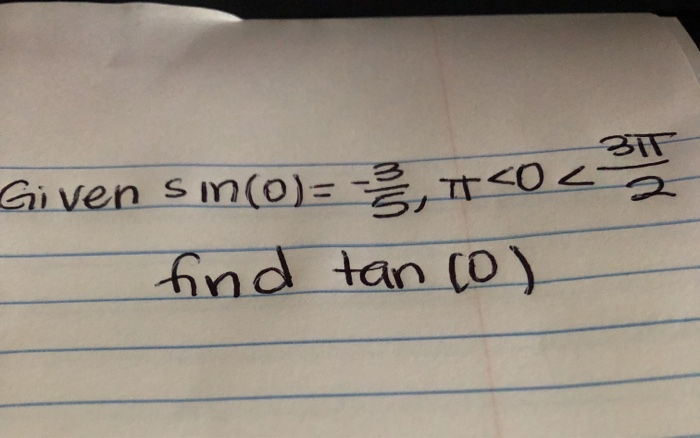 Given sin(0) = -3/5, π<0<3π/2
find tan (0)